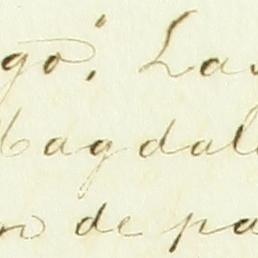 go", Las
Magdale
n de pa